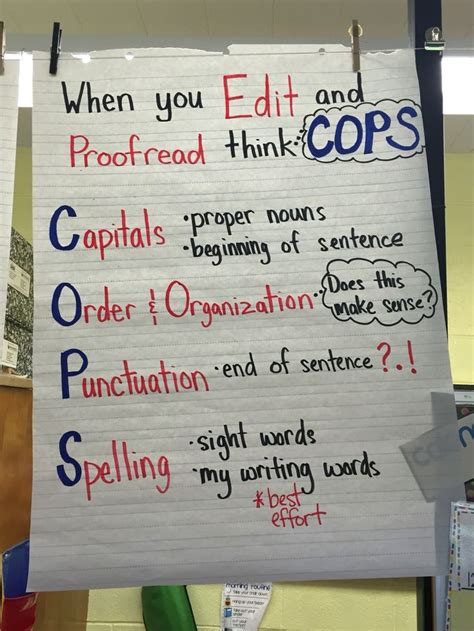 When you Edit and
Proofread think COPS
Capitals • proper nouns
• beginning of sentence
Order & Organization • Does this
make sense?
Punctuation • end of sentence ? . !
Spelling • sight words
• my writing words
*best
effort
morning routine